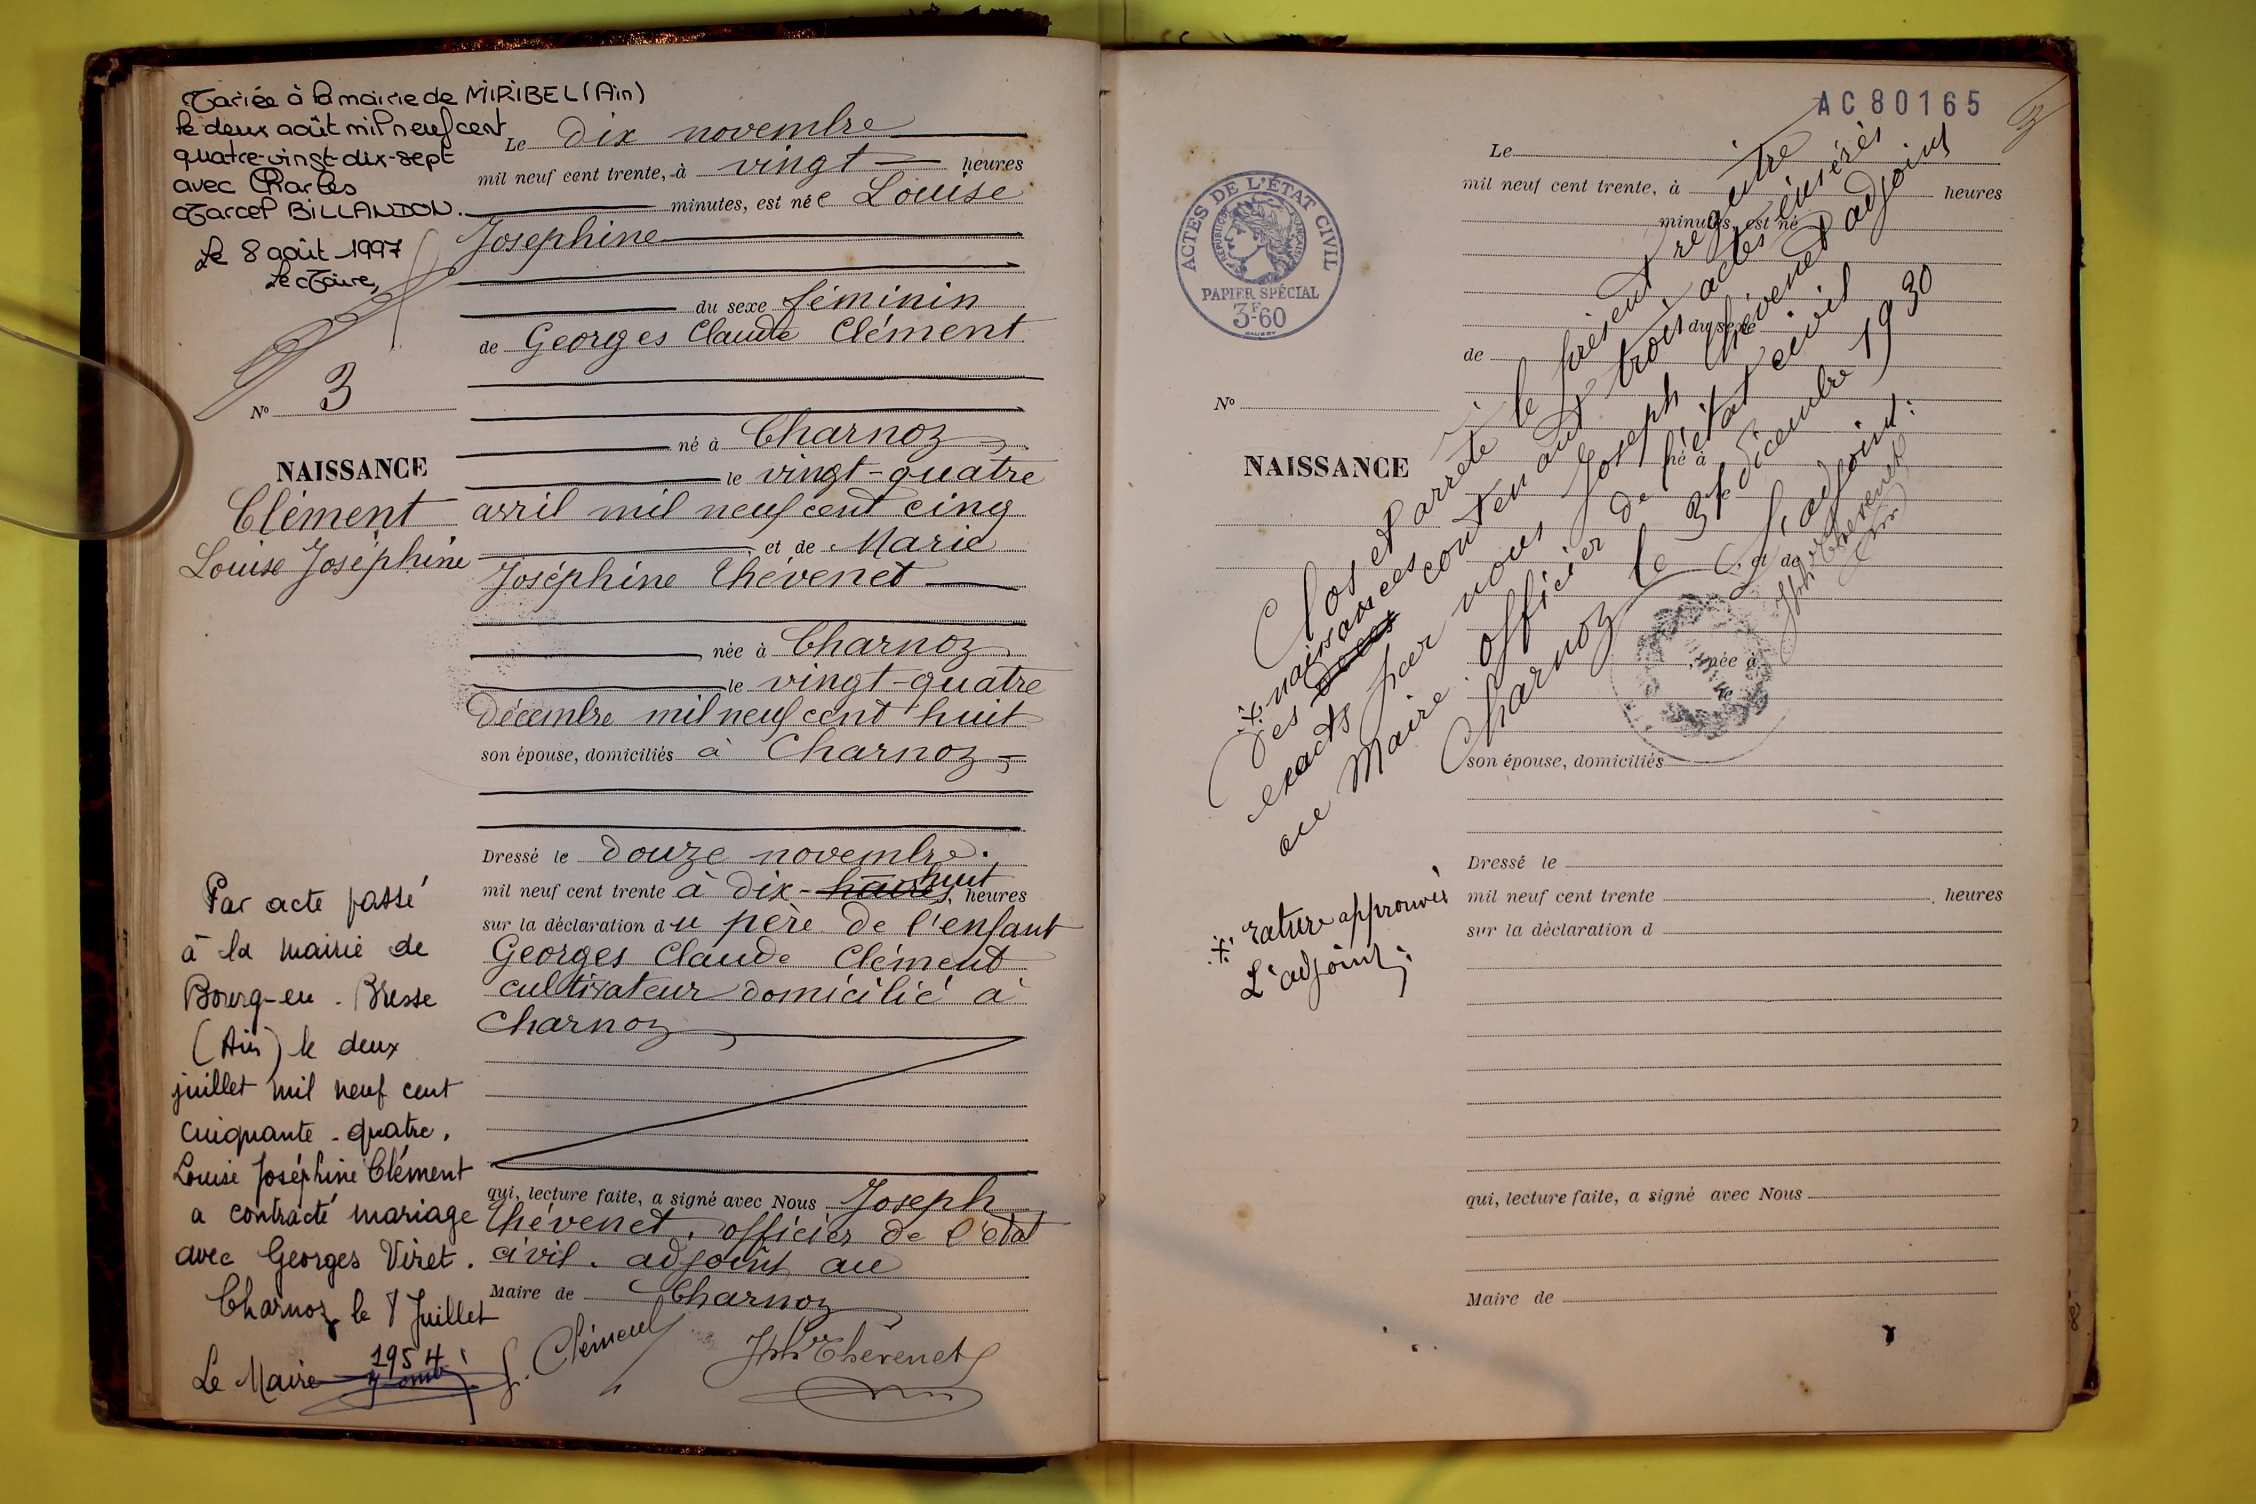 Mariée à la mairie de MIRIBEL (Ain)
le deux août mil neuf cent
quatre-vingt-dix-sept
avec Charles
Marcel BILLANDON.
Le 8 août 1997
Le Maire,
N° 3
NAISSANCE
Clément
Louise Joséphine
Par acte passé
à la mairie de
Bourg-en-Bresse
(Ain) le deux
juillet mil neuf cent
cinquante-quatre,
Louise Joséphine Clément
a contracté mariage
avec Georges Viret.
Charnoz le 8 Juillet
1954
Le Maire
Le dix novembre
mil neuf cent trente, à vingt heures
minutes, est née Louise
Josephine
du sexe féminin
de Georges Claude Clément
né à Charnoz
le vingt-quatre
avril mil neuf cent cinq
et de Marie
Joséphine Thévenet
née à Charnoz
le vingt-quatre
décembre mil neuf cent huit
son épouse, domiciliés à Charnoz
Dressé le douze novembre
mil neuf cent trente à dix-huit heures
sur la déclaration du père de l'enfant
Georges Claude Clément
cultivateur domicilié à
Charnoz
qui, lecture faite, a signé avec Nous Joseph
Thévenet, officier de l'état
civil. adjoint au
Maire de Charnoz
G. Clément
Jph Thévenet
AC80165
3
ACTES DE L'ÉTAT CIVIL
RÉPUBLIQUE FRANÇAISE
PAPIER SPÉCIAL
3F60
Le
mil neuf cent trente, à heures
minutes, est né
du sexe
de
N°
NAISSANCE
né à
et de
née à
le
son épouse, domiciliés
Dressé le
mil neuf cent trente heures
sur la déclaration d
qui, lecture faite, a signé avec Nous
Maire de
Clos et arrêté le présent registre
naissances
des décès contenant trois actes
exacts par nous Joseph Thévenet adjoint
au Maire. officier de l'état civil
Charnoz le 31 décembre 1930
L'adjoint:
Jph Thévenet
rature approuvée
L'adjoint: